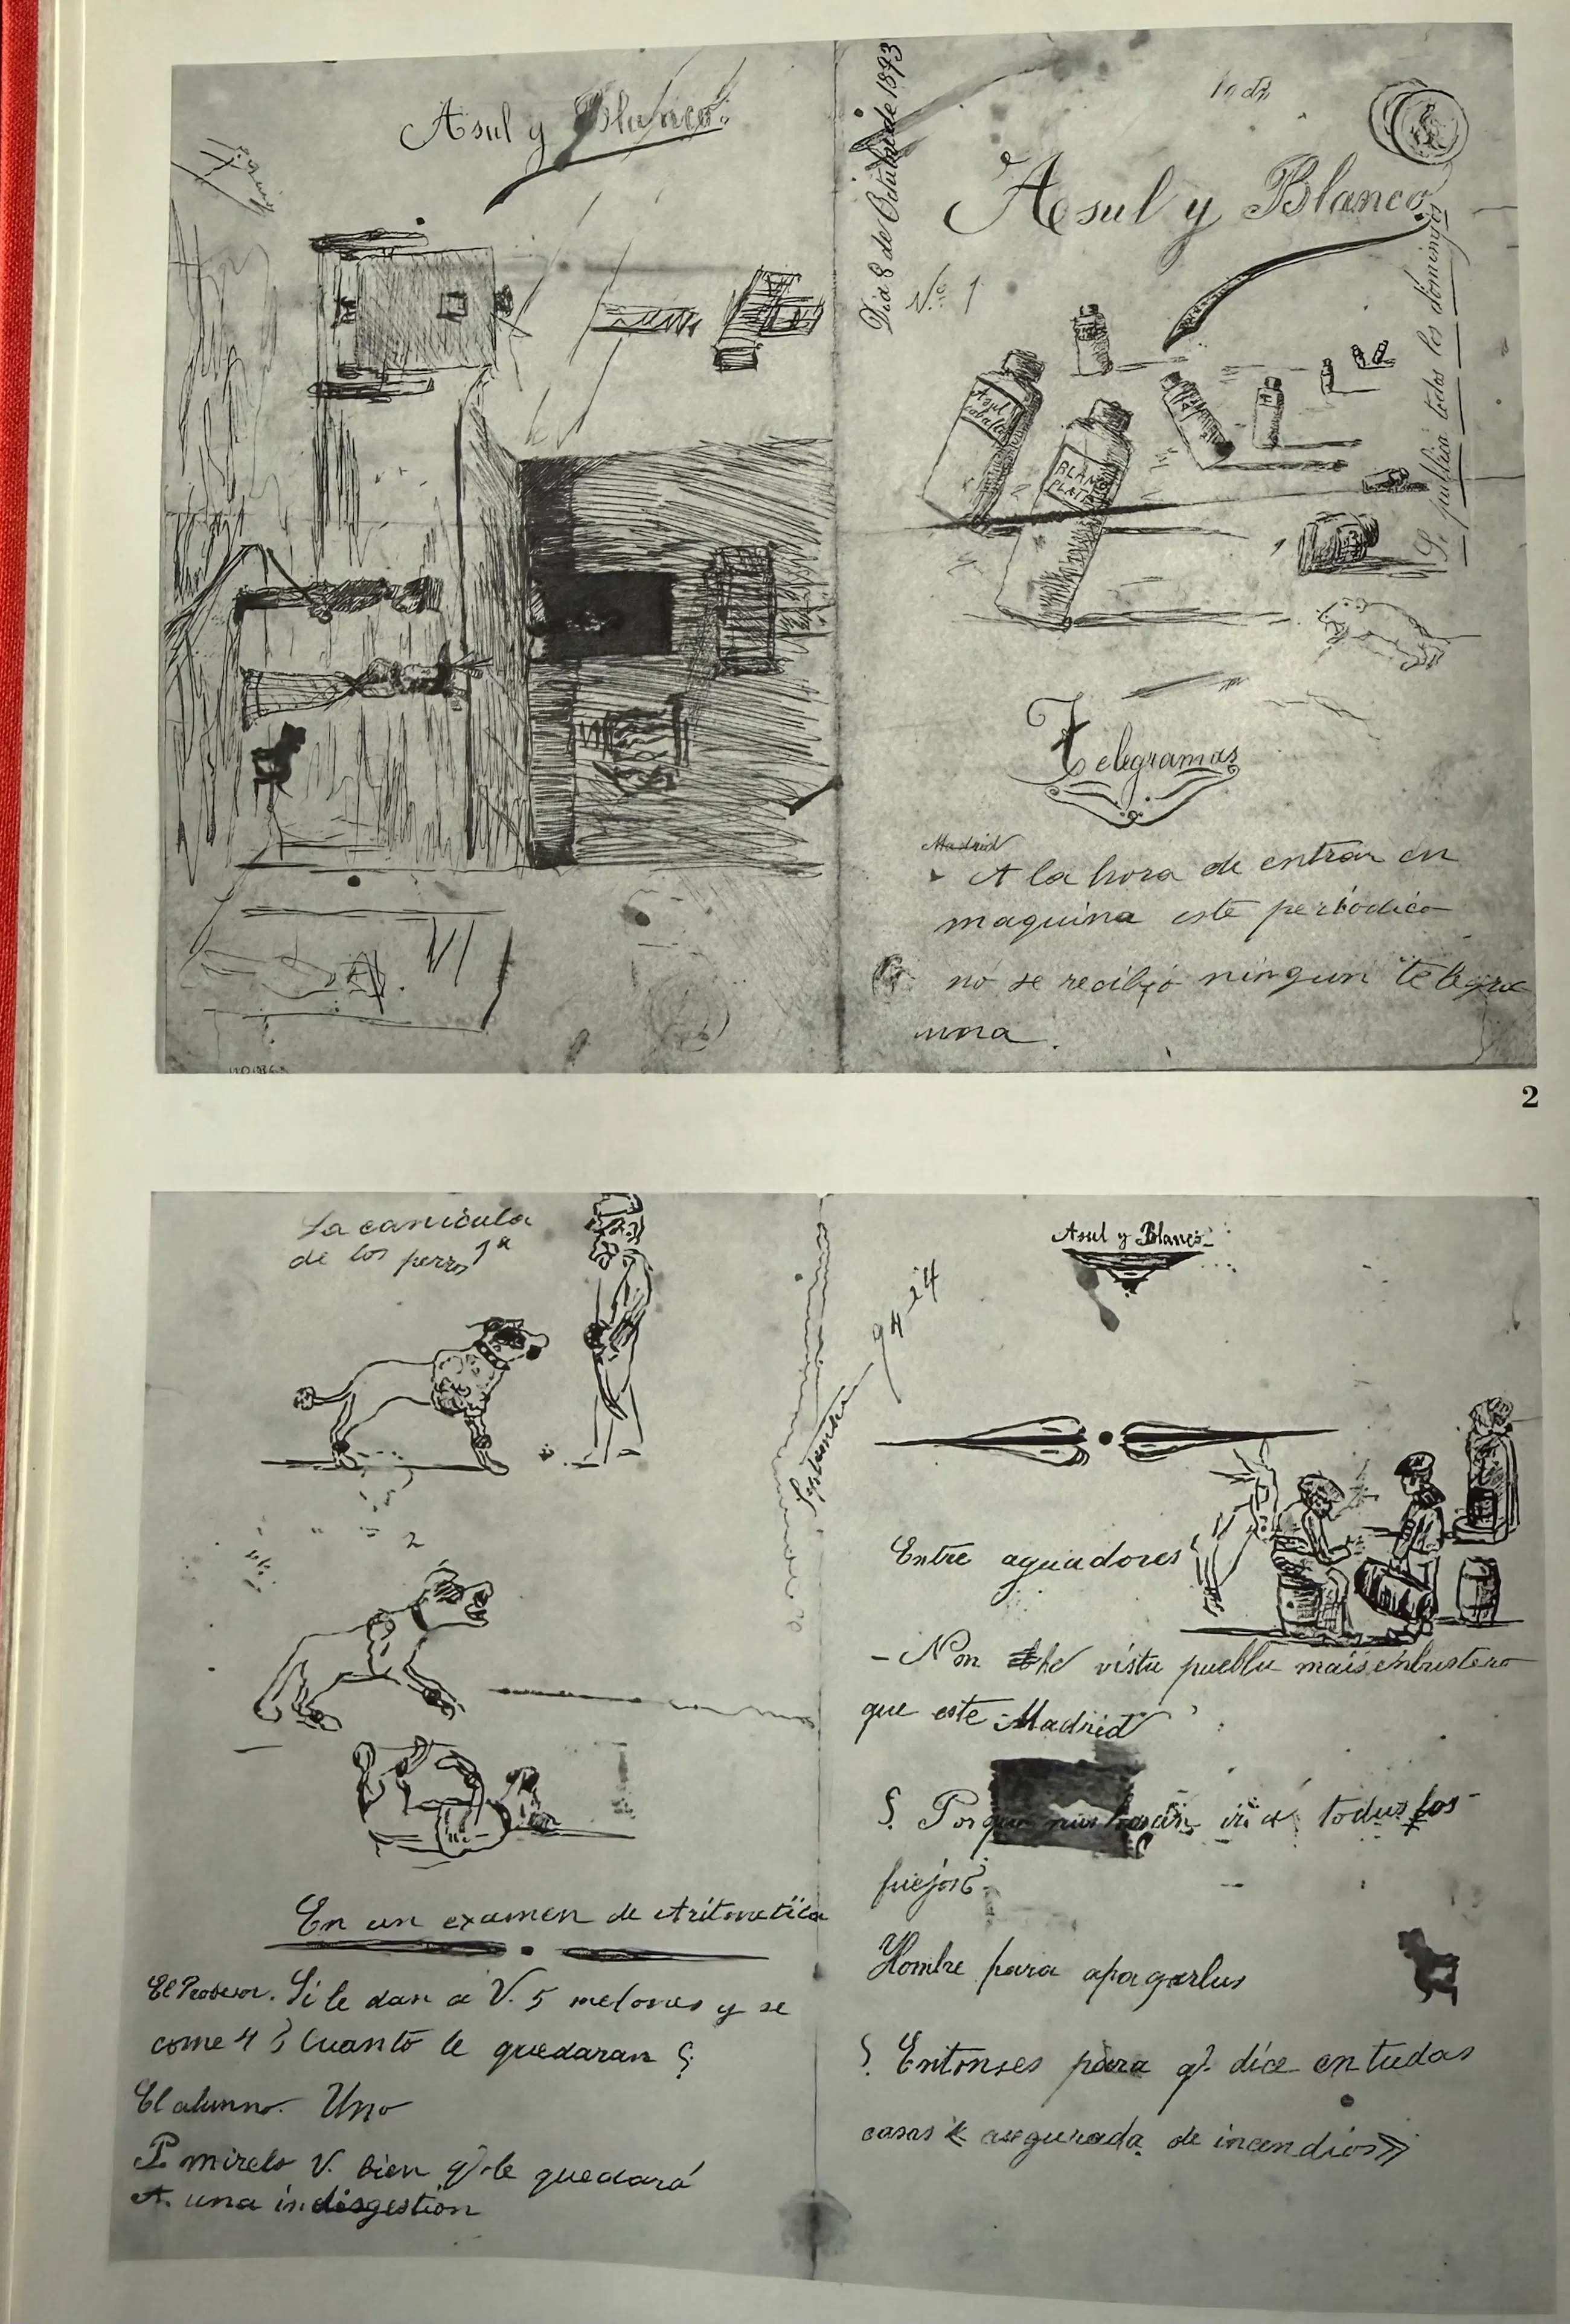 Asul y Blanco.
Dia 8 de Octubre de 1893
10 cts
Asul y Blanco.
No. 1
Se publica todos los domingos
Asul
cobalto
BLANC
PLATA
Telegramas
Madrid
A la hora de entrar en
maquina este periodico
no se recibio ningun telegra
ma.
2
La canicula
de los perros 1a
2
En un examen de Aritmetica
El Profesor. Si le dan a V. 5 melones y se
come 4 ¿ Cuanto le quedaran ?
El alumno. Uno
P. mirelo V. bien q. le quedará
A. una indisgestion
Asul y Blanco
Septiembre 94
Entre aguadores
- Non he vistu pueblu mais enbustero
que este Madrid
? Porque nus hacen ir a todus los
fuejos?
Hombre para apagarlus
? Entonses para q. dice en tudas
casas « asegurada de incendios»